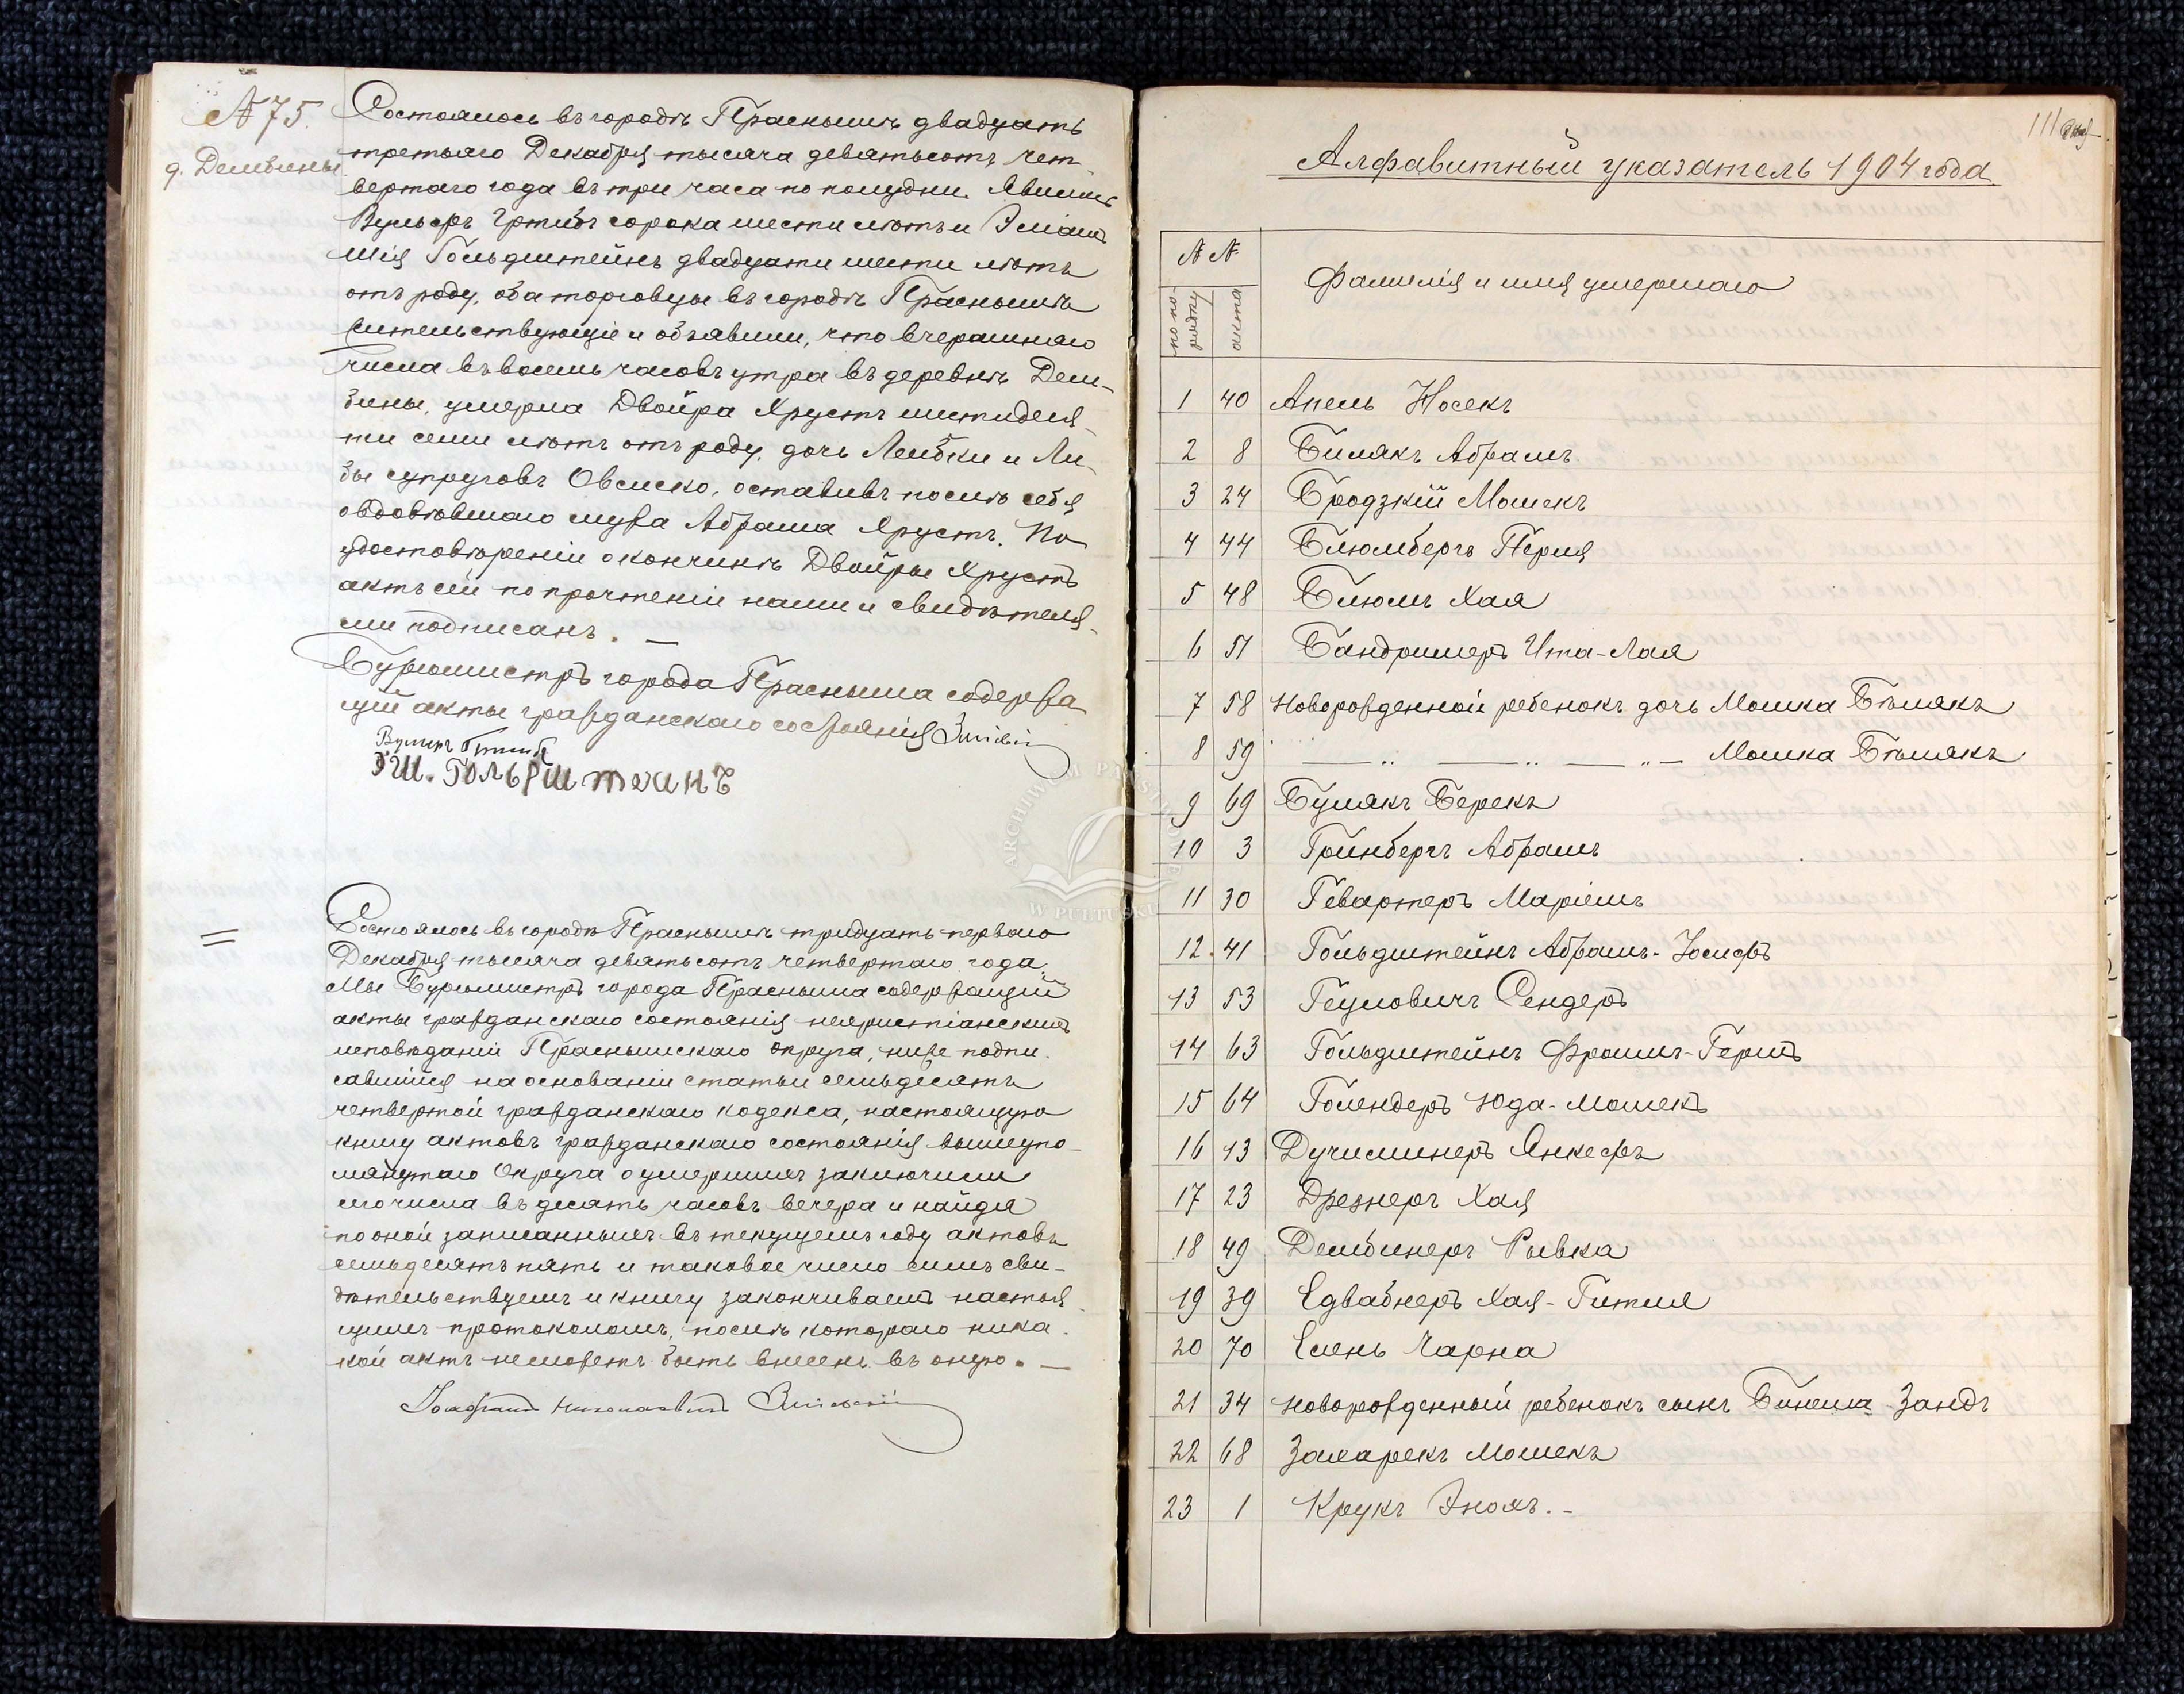 № 75.
д. Дембины
Состоялось въ городѣ Праснышѣ двадцать
третьяго Декабря тысяча девятьсотъ чет
вертаго года въ три часа по полудни. Явились
Вульфъ сорока шести лѣтъ и
Гольдштейнъ двадцати шести лѣтъ
отъ роду, оба торговцы въ городѣ Праснышѣ
жительствующіе и объявили, что вчерашняго
числа въ восемь часовъ утра въ деревнѣ Дем-
бины, умерла Двойра Хрустъ шестидеся-
ти семи лѣтъ отъ роду, дочь Лейбки и Ли-
бы супруговъ Овсиско, оставивъ послѣ себя
овдовѣвшаго мужа Абрама Хрустъ. По
удостовѣреніи о кончинѣ Двойры Хрустъ
актъ сей по прочтеніи нами и свидѣтеля-
ми подписанъ. —
Бургомистръ города Прасныша содержа
щій акты гражданскаго состоянія
Э Ш. Гольдштеинъ
Состоялось въ городѣ Праснышѣ тридцать перваго
Декабря тысяча девятьсотъ четвертаго года.
Мы Бургомистръ города Прасныша содержащій
акты гражданскаго состоянія нехристіанскихъ
исповѣданій Праснышскаго округа, ниже подпи-
савшійся на основаніи статьи семьдесятъ
четвертой гражданскаго кодекса, настоящую
книгу актовъ гражданскаго состоянія вышеупо-
мянутаго Округа о умершихъ заключили
сего числа въ десять часовъ вечера и найдя
по оной записанныхъ въ текущемъ году актовъ
семьдесятъ пять и таковое число симъ сви-
дѣтельствуемъ и книгу закончиваемъ настоя-
щимъ протоколомъ, послѣ котораго ника-
кой актъ не можетъ быть внесенъ въ оную. —
111
Алфавитный указатель 1904 года
№ №
по по-
рядку
акта
Фамилія и имя умершаго
1 40 Апель Носекъ
2 8 Билякъ Абрамъ
3 24 Бродзкій Мошекъ
4 44 Блюмбергъ Перля
5 48 Блюмъ Хая
6 51 Бандримеръ Ита-Лая
7 58 Новорожденной ребенокъ дочь Мошка Бѣлякъ
8 59 — „ — „ — „ — Мошка Бѣлякъ
9 69 Булякъ Берекъ
10 3 Гринбергъ Абрамъ
11 30 Гевартеръ Маріемъ
12. 41 Гольдштейнъ Абрамъ-Іосифъ
13 53 Геуловичъ Сендеръ
14 63 Гольдштейнъ Фроимъ-Гершъ
15 64 Голендеръ Юда-Мошекъ
16 13 Дучиминеръ Янкефъ
17 23 Дрезнеръ Хая
18 49 Дембинеръ Рывка
19 39 Едвабнеръ Хая-Гитля
20 70 Елень Чарна
21 34 Новорожденный ребенокъ сынъ Бинема Зандъ
22 68 Захарекъ Мошекъ
23 1 Крукъ Энохъ. -
ARCHIWUM PAŃSTWOWE
W PUŁTUSKU